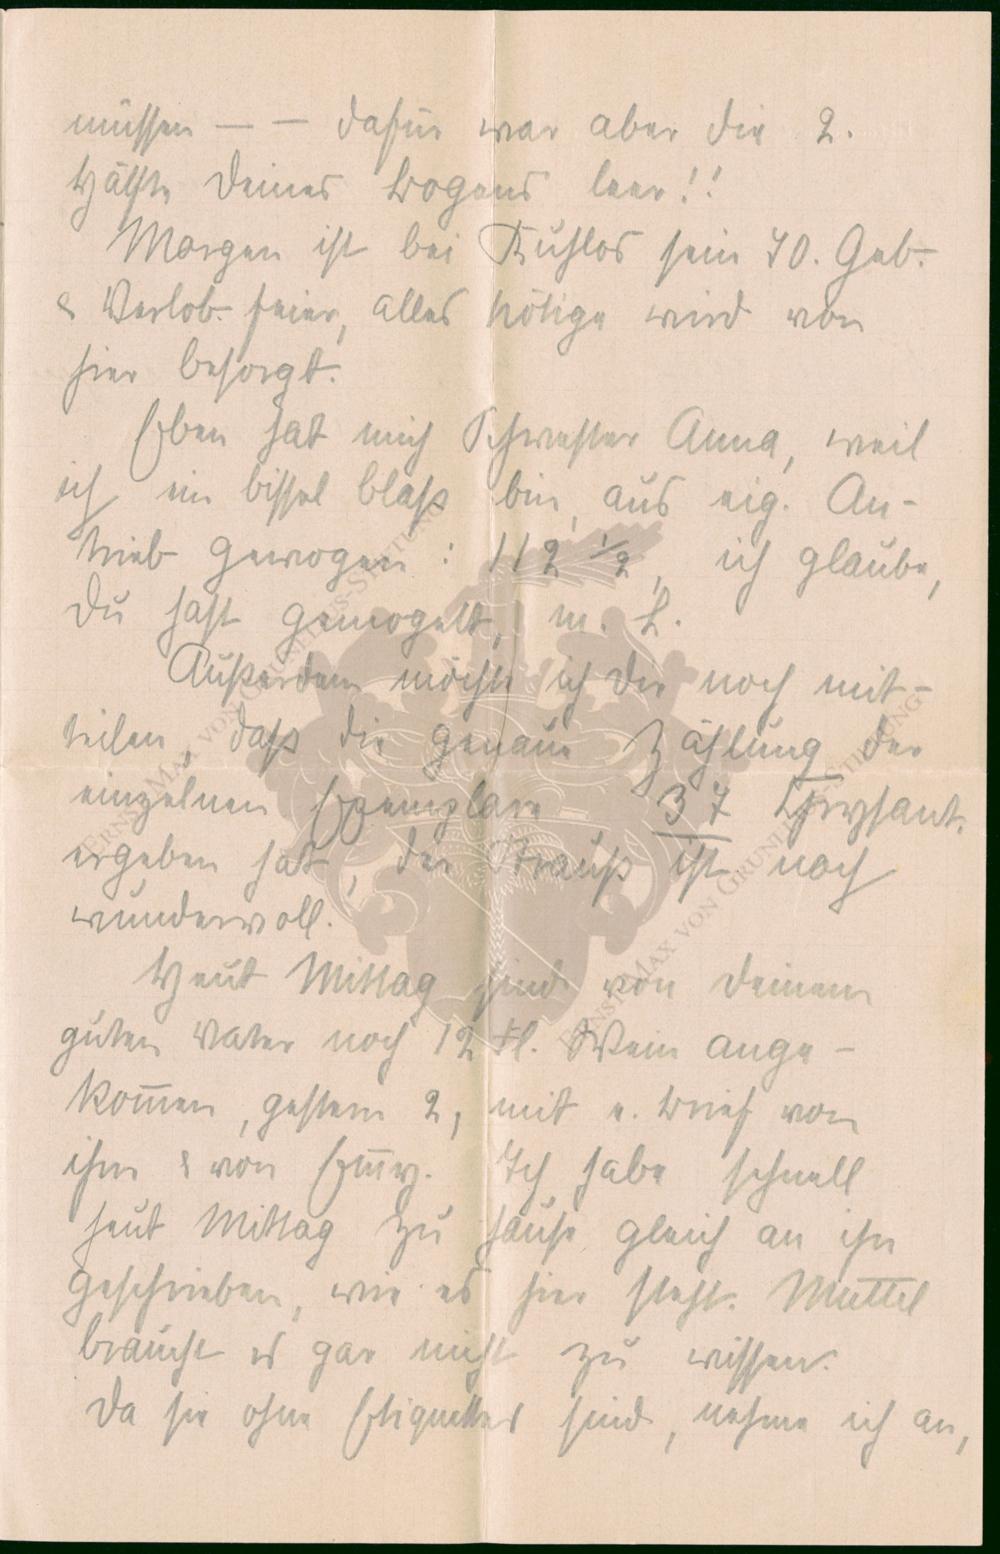 müssen — — dafür war aber die 2.
Hälfte Deines Bogens leer!!
Morgen ist bei Kuhlos sein 70. Geb.-
& Verlob. feier, alles Nötige wird von
hier besorgt.
Eben hat mich Schwester Anna, weil
ich ein bissel blaß bin, aus eig. An-
trieb gewogen: 112 ½, ich glaube,
Du hast gemogelt, m. L.
Außerdem möchte ich Dir noch mit-
teilen, daß die genaue Zählung der
einzelnen Exemplare 37 Chrysant.
ergeben hat, der Strauß ist noch
wundervoll.
Heut Mittag sind von Deinem
guten Vater noch 12 Fl. Wein ange-
kom̅en, gestern 2, mit e. Brief von
ihm & von Em̅y. Ich habe schnell
heut Mittag zu Hause gleich an ihn
geschrieben, wie es hier steht. Muttel
braucht es gar nicht zu wissen.
Da sie ohne Etiquettes sind, nehme ich an,
ERNST-MAX VON GRUNELIUS-STIFTUNG
ERNST-MAX VON GRUNELIUS-STIFTUNG